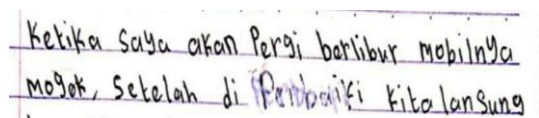 Ketika saya akan Pergi berlibur mobilnya
mogok, Setelah di Perbaiki kita lansung